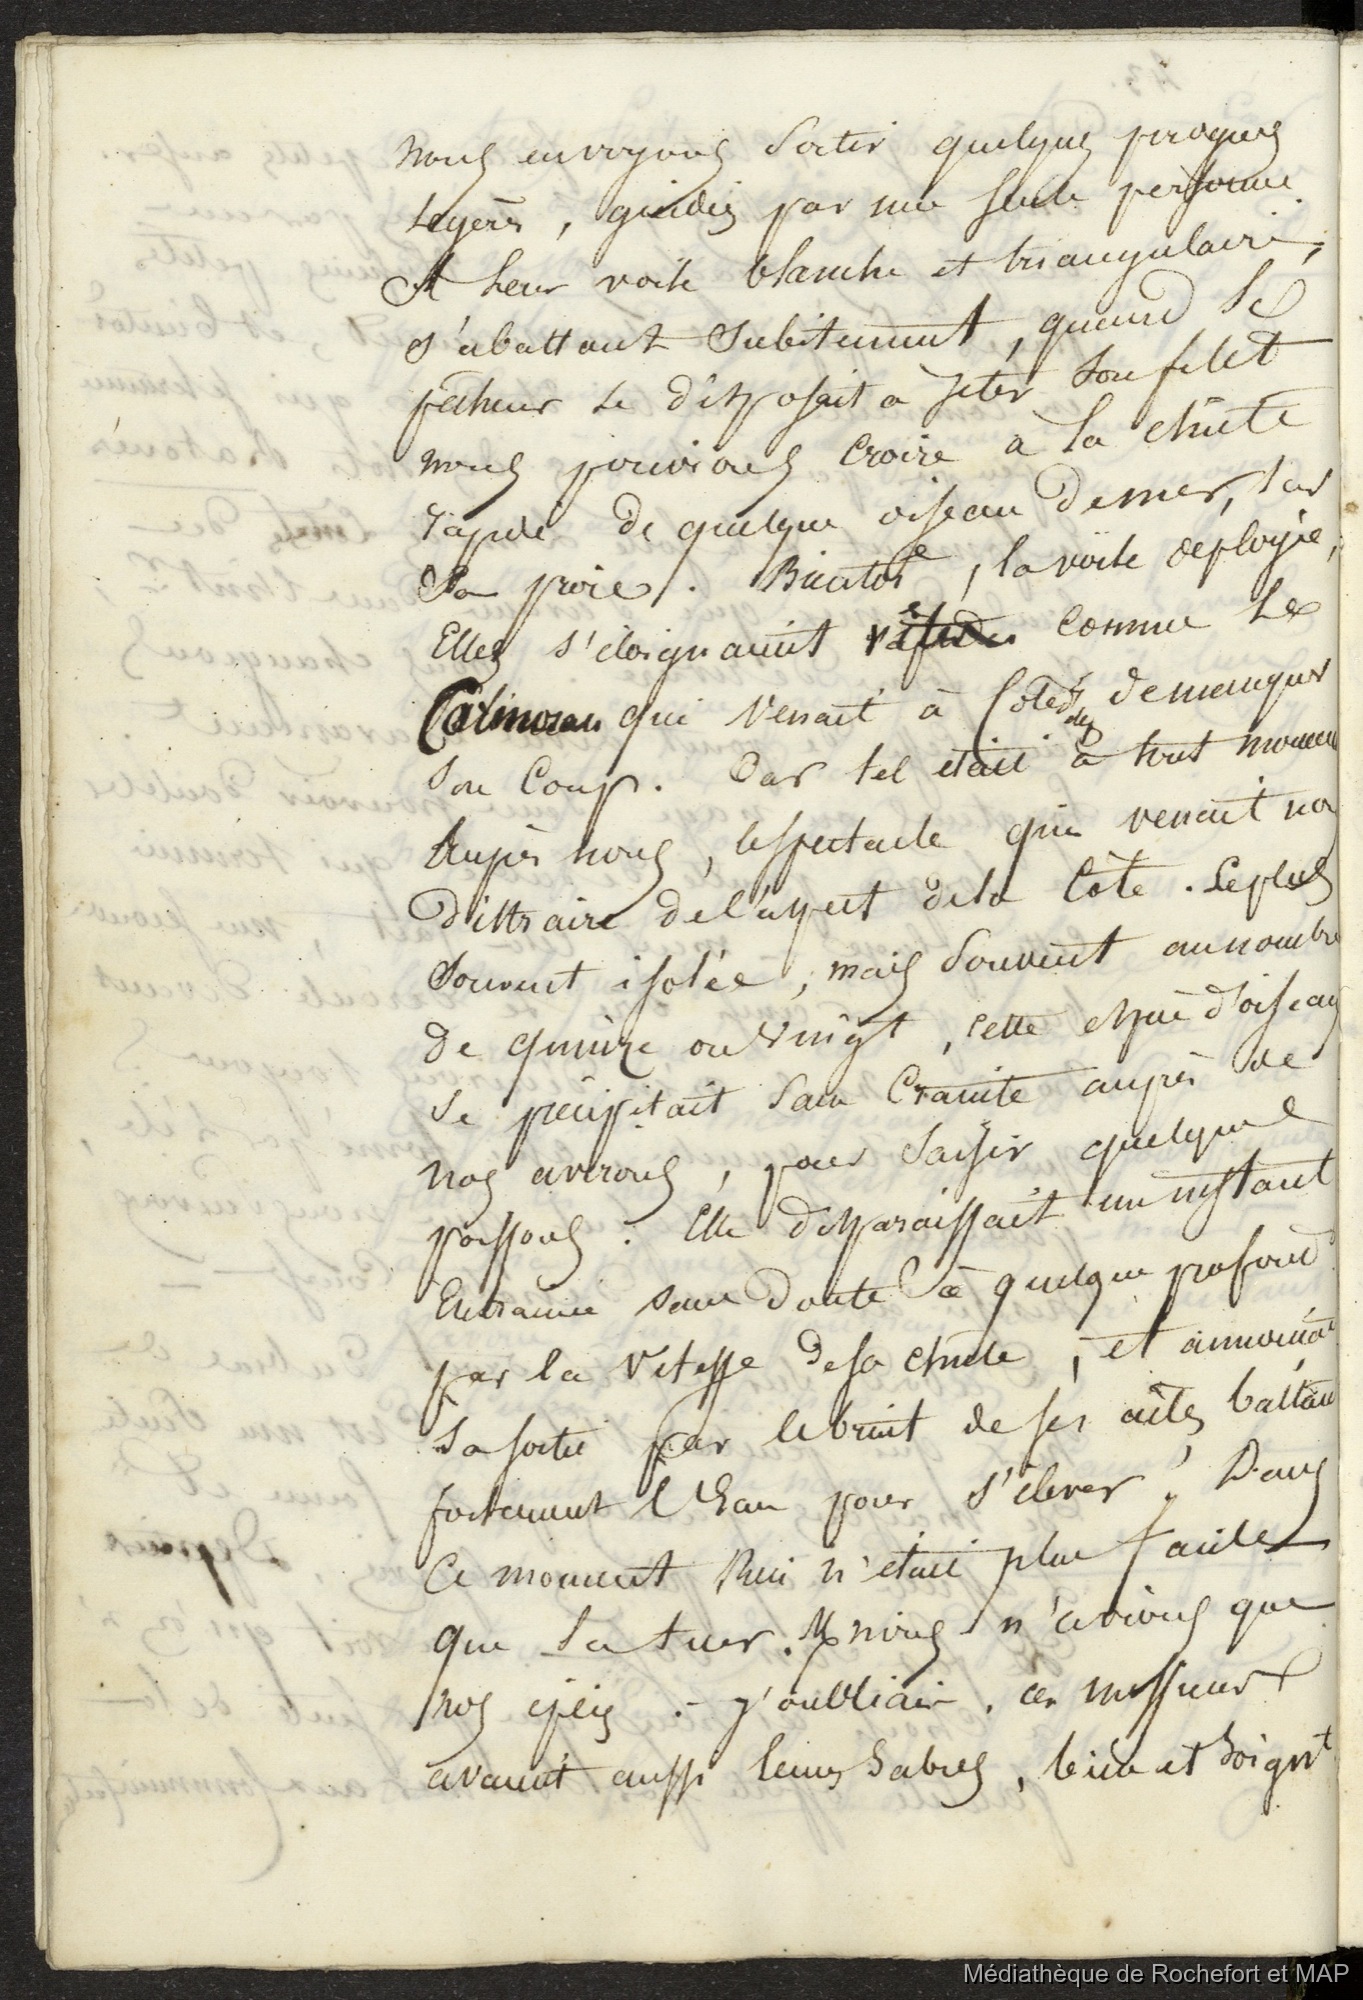 nous envoyons sortir quelques pirogues
legères, guidées par une seule personne
et leur voile blanche et triangulaire,
s'abattant subitement, quand le
pêcheur se disposait à jeter son filet
nous pouvions croire à la chûte
rapide de quelque oiseau de mer, sur
sa proie. Bientot, la voile deployée,
Elles s'éloignaient comme le
qui venait à coté de manquer
son coup. Car tel etait à tout moment
auprès nous, le spectacle qui venait nous
distraire de l'aspect de la Côte. Le plus
souvent isolée, mais souvent au nombre
de quinze ou vingt, cette espèce d'oiseau
se précipitait sans crainte auprès de
nos avirons, pour saisir quelque
poissons. Elle disparaissait un instant
Entrainée sans doute à quelque profond
par la vitesse de sa chute, et annonçait
sa sortie par le bruit de ses ailes battant
fortement l'Eau pour s'élever. Dans
Ce moment Rien n'était plus facile
que la tuer. nous n'avions que
nos épées. - j'oubliais. ces messieurs
avaient aussi leurs sabres, bien et soignt
Médiathèque de Rochefort et MAP